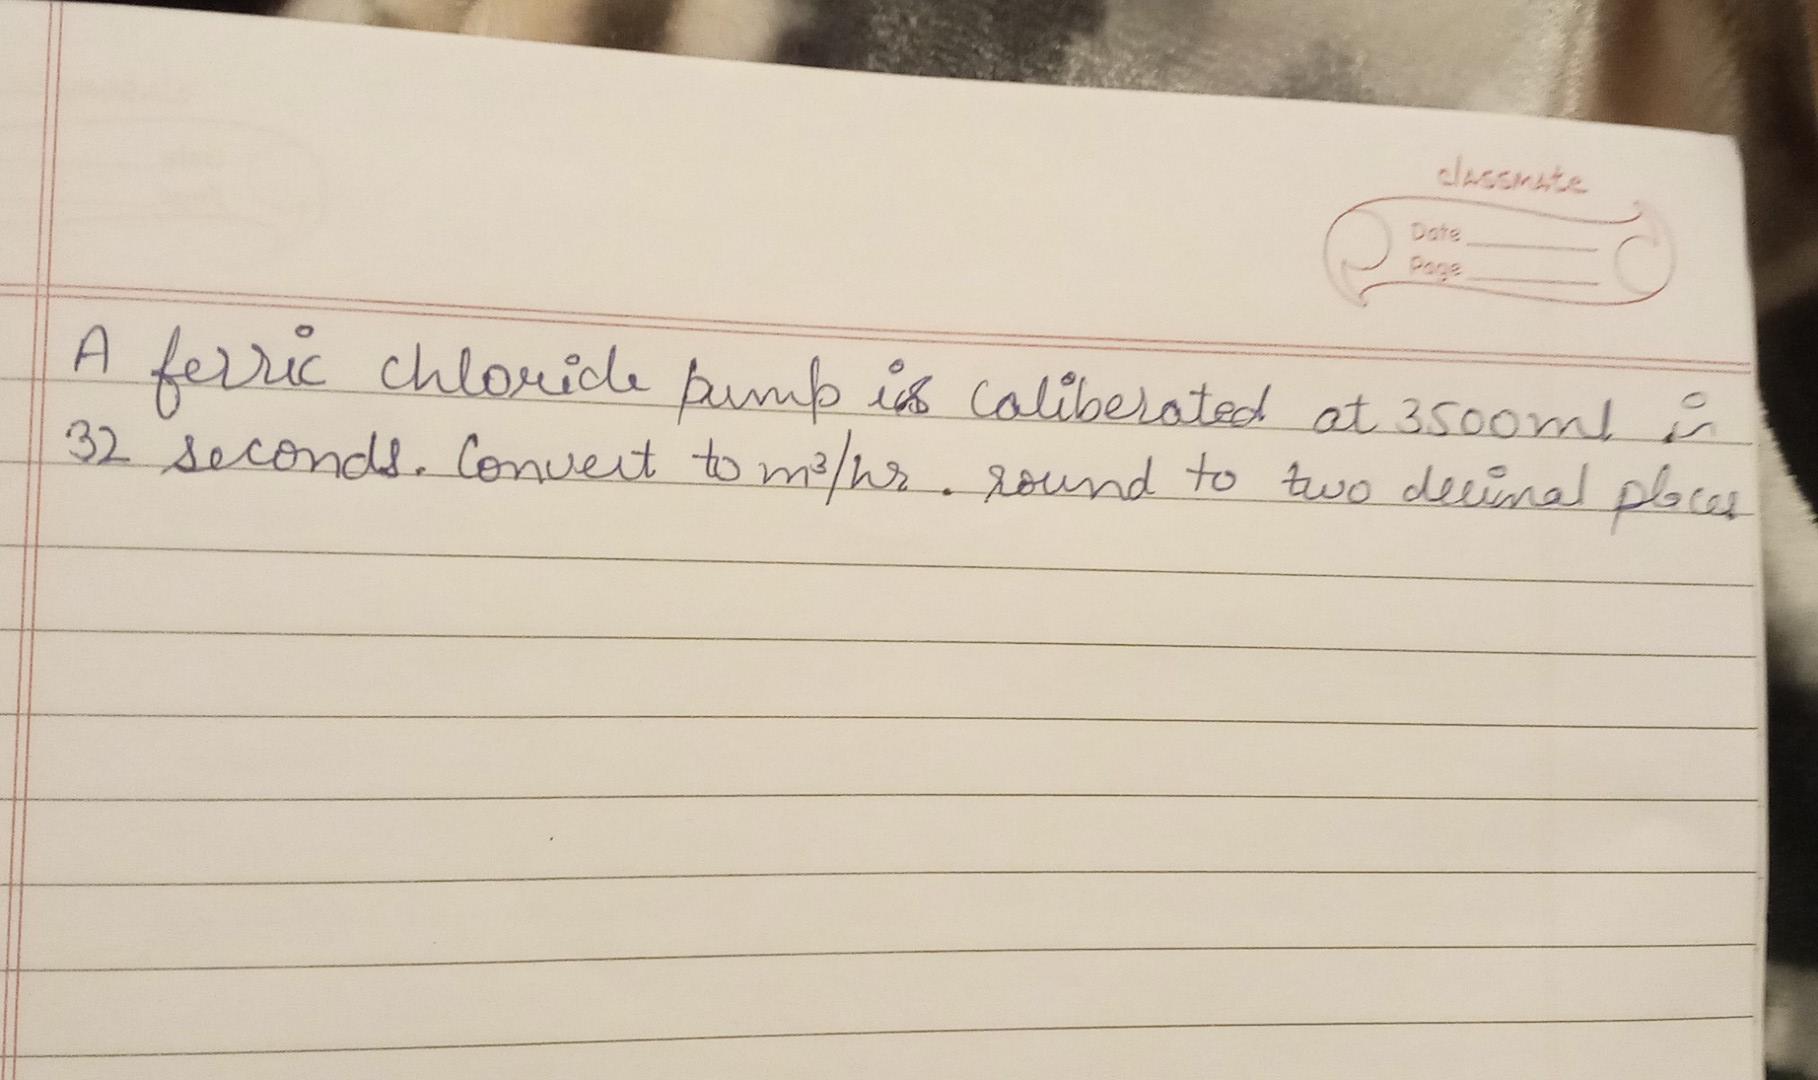 classmate
Date
Page
A ferric chloride pump is caliberated at 3500ml in
32 seconds. Convert to m³/hr. round to two decimal places